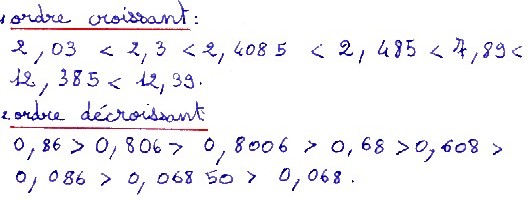 1 ordre croissant :
2,03 < 2,3 < 2,4085 < 2,485 < 7,89 <
12,385 < 12,39.
2. ordre décroissant
0,86 > 0,806 > 0,8006 > 0,68 > 0,608 >
0,086 > 0,06850 > 0,068.